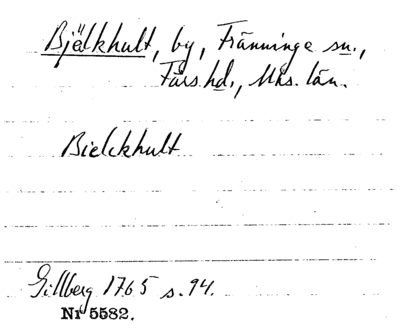 Bjälkhult, by, Fränninge sn.,
Färs hd., Mhs. län.
Bielckhult
Gillberg 1765 s. 94.
Nr 5582.